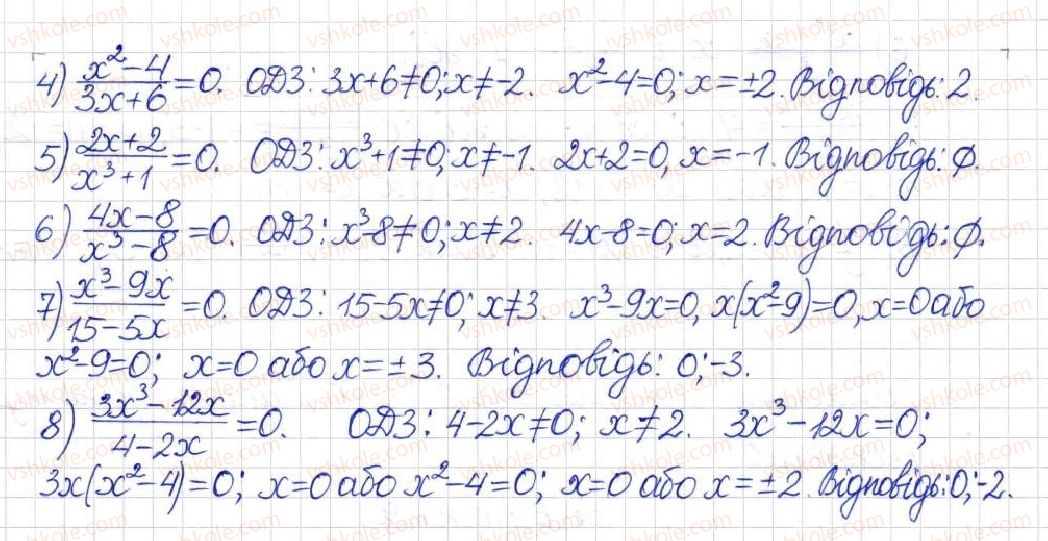 4) (x²-4)/(3x+6)=0. ОДЗ: 3x+6≠0; x≠-2. x²-4=0; x=±2. Відповідь: 2.
5) (2x+2)/(x³+1)=0. ОДЗ: x³+1≠0; x≠-1. 2x+2=0, x=-1. Відповідь: ∅.
6) (4x-8)/(x³-8)=0. ОДЗ: x³-8≠0; x≠2. 4x-8=0; x=2. Відповідь: ∅.
7) (x³-9x)/(15-5x)=0. ОДЗ: 15-5x≠0; x≠3. x³-9x=0, x(x²-9)=0, x=0 або
x²-9=0; x=0 або x=±3. Відповідь: 0;-3.
8) (3x³-12x)/(4-2x)=0. ОДЗ: 4-2x≠0; x≠2. 3x³-12x=0;
3x(x²-4)=0; x=0 або x²-4=0; x=0 або x=±2. Відповідь: 0;-2.